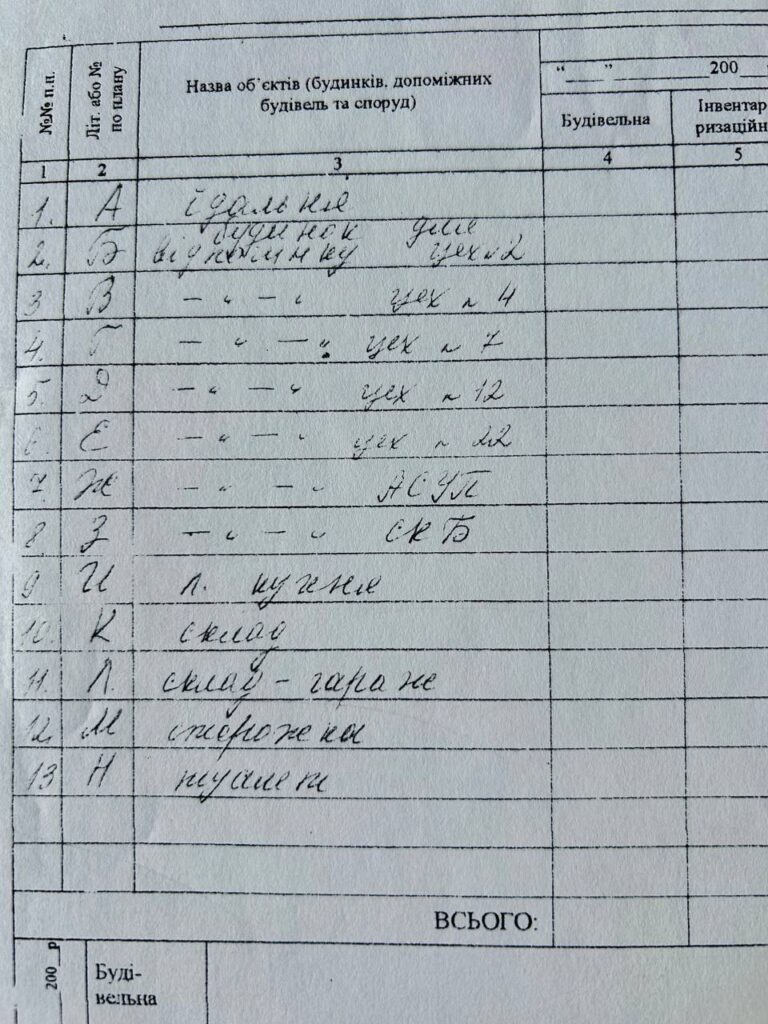 №№ п.п.
Літ. або №
по плану
Назва об'єктів (будинків, допоміжних
будівель та споруд)
"___" ________ 200__
Будівельна
Інвентар
ризаційн
1 2 3 4 5
1. А їдальня
будинок для
2. Б відпочинку цех №2
3 В — " — " цех № 4
4. Г — " — " цех № 7
5. Д — " — " цех № 12
6. Е — " — " цех № 22
7. Ж — " — " АСУП
8. З — " — " СКБ
9 И л. кухня
10. К склад
11. Л. склад - гараж
12. М сторожка
13 Н туалет
ВСЬОГО:
200_р
Буді-
вельна